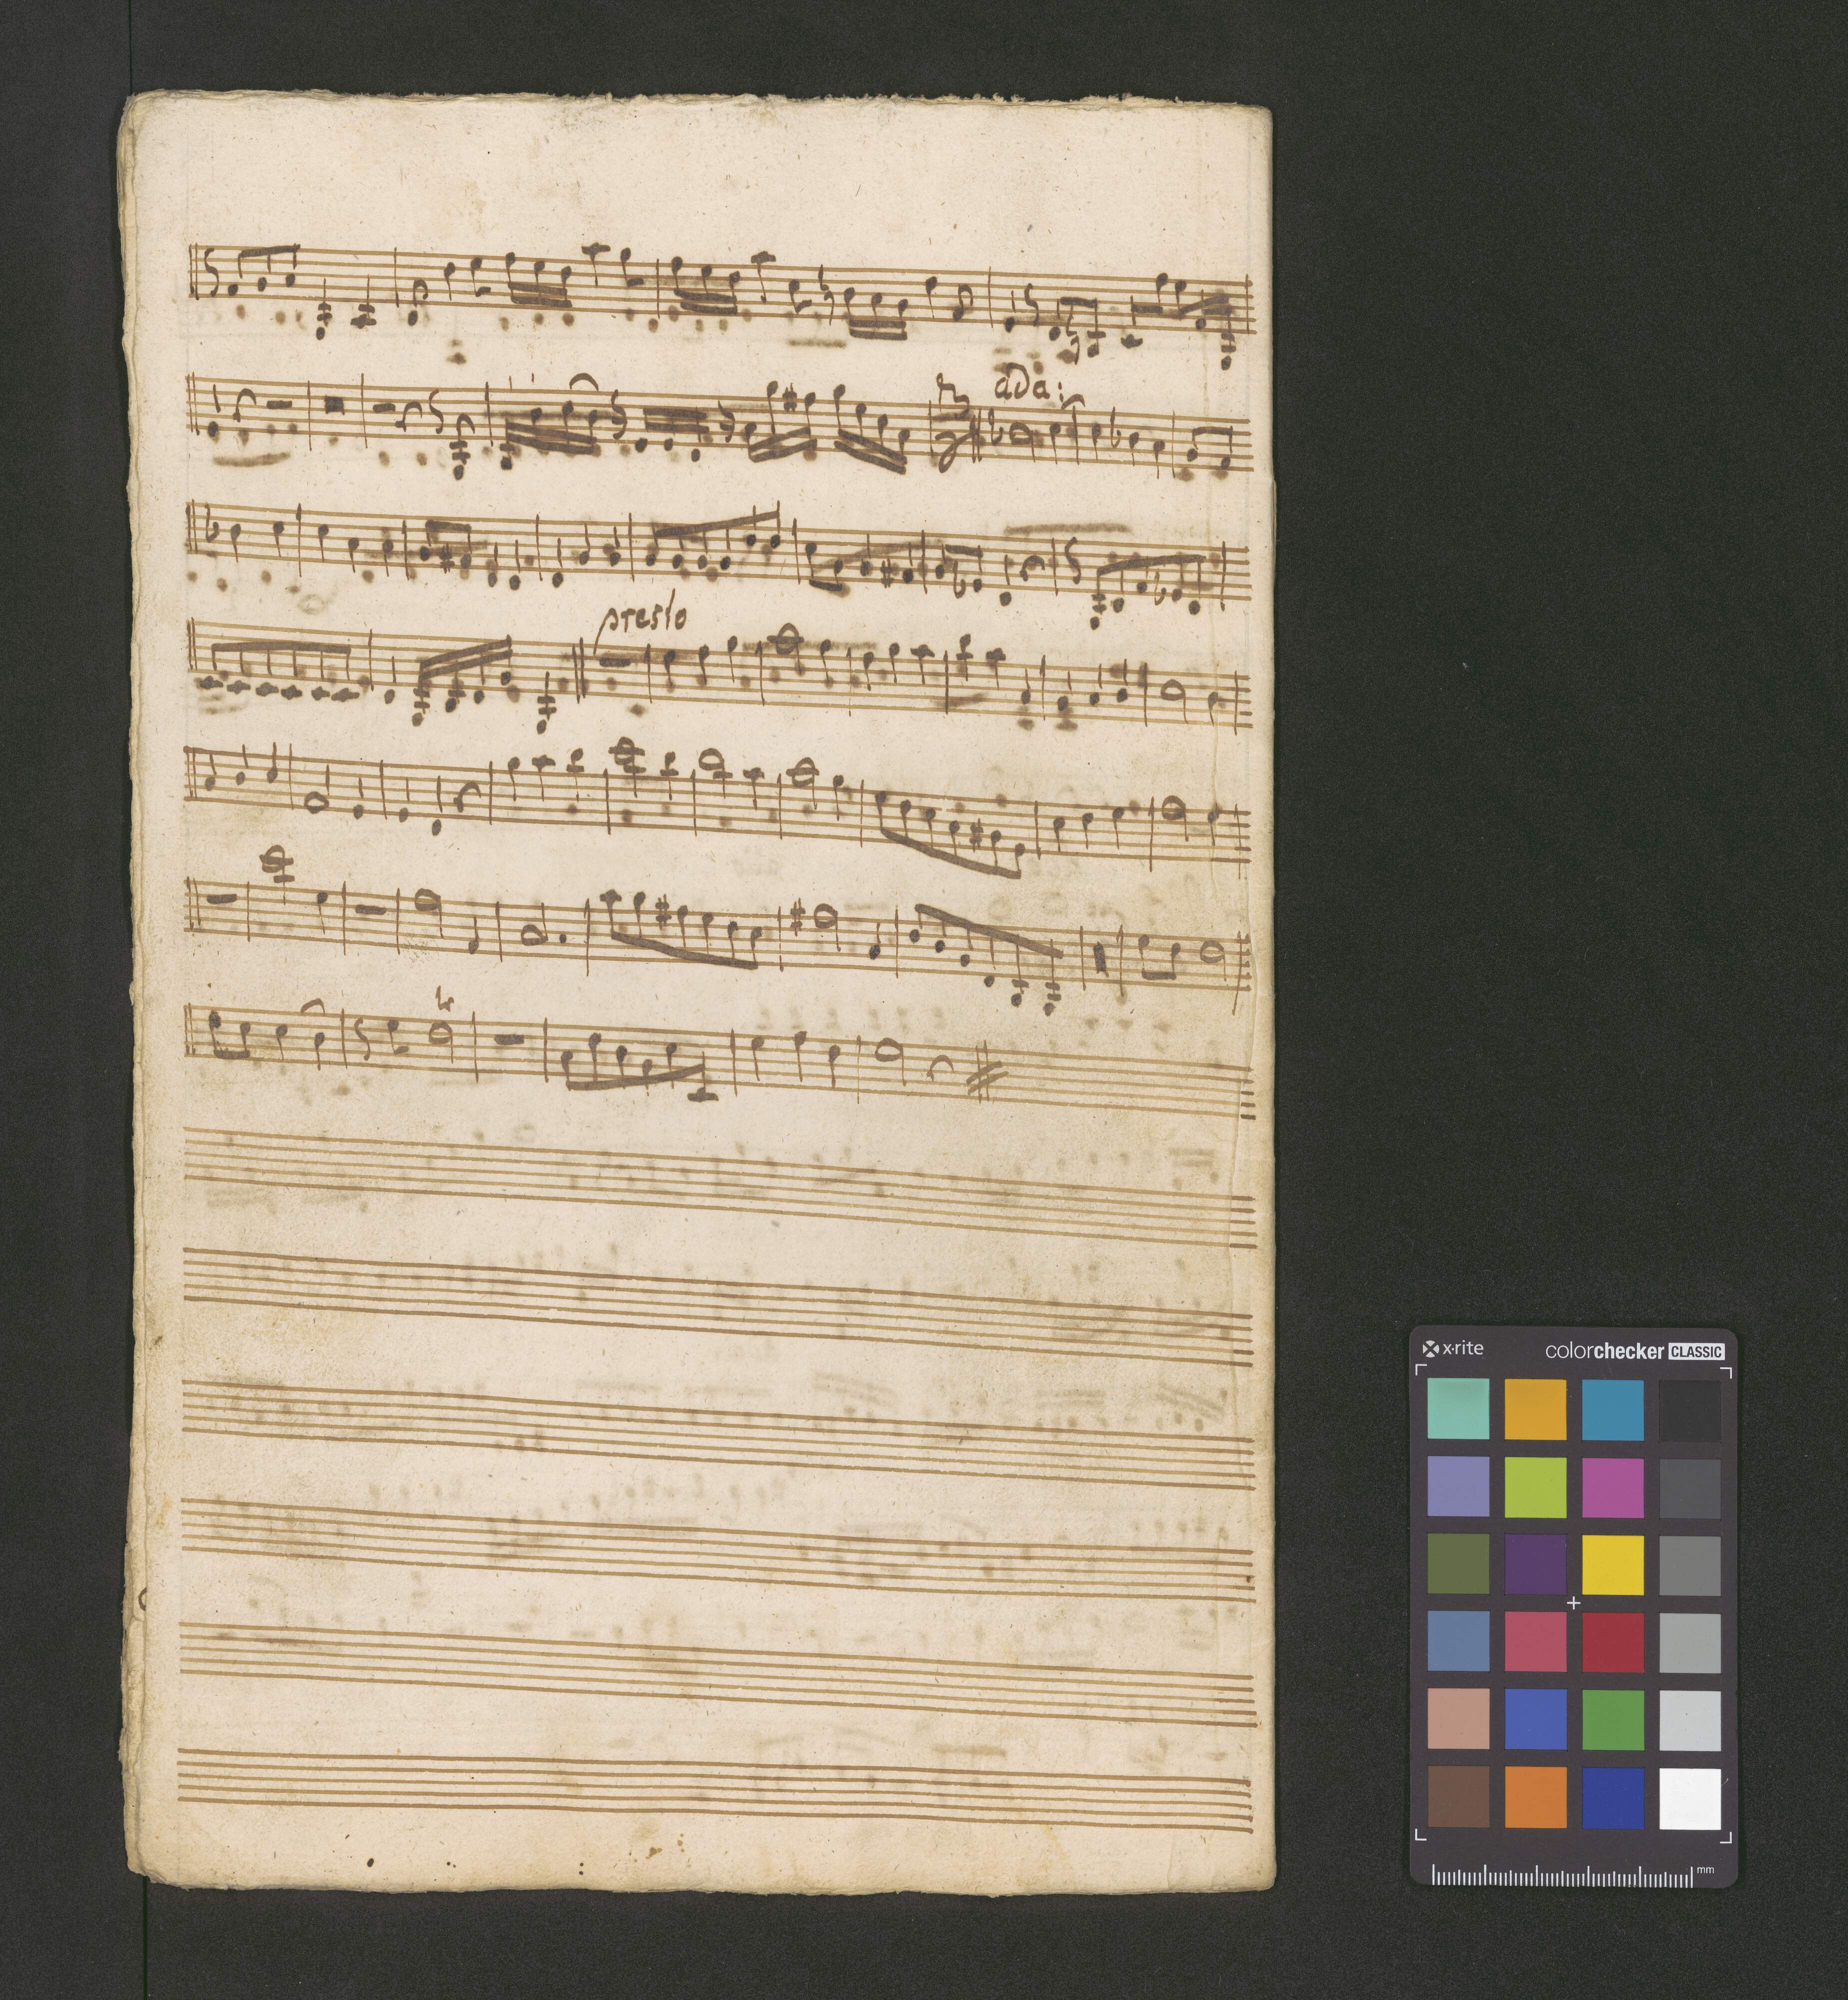 ada:
presto
tr
x-rite
colorchecker CLASSIC
mm